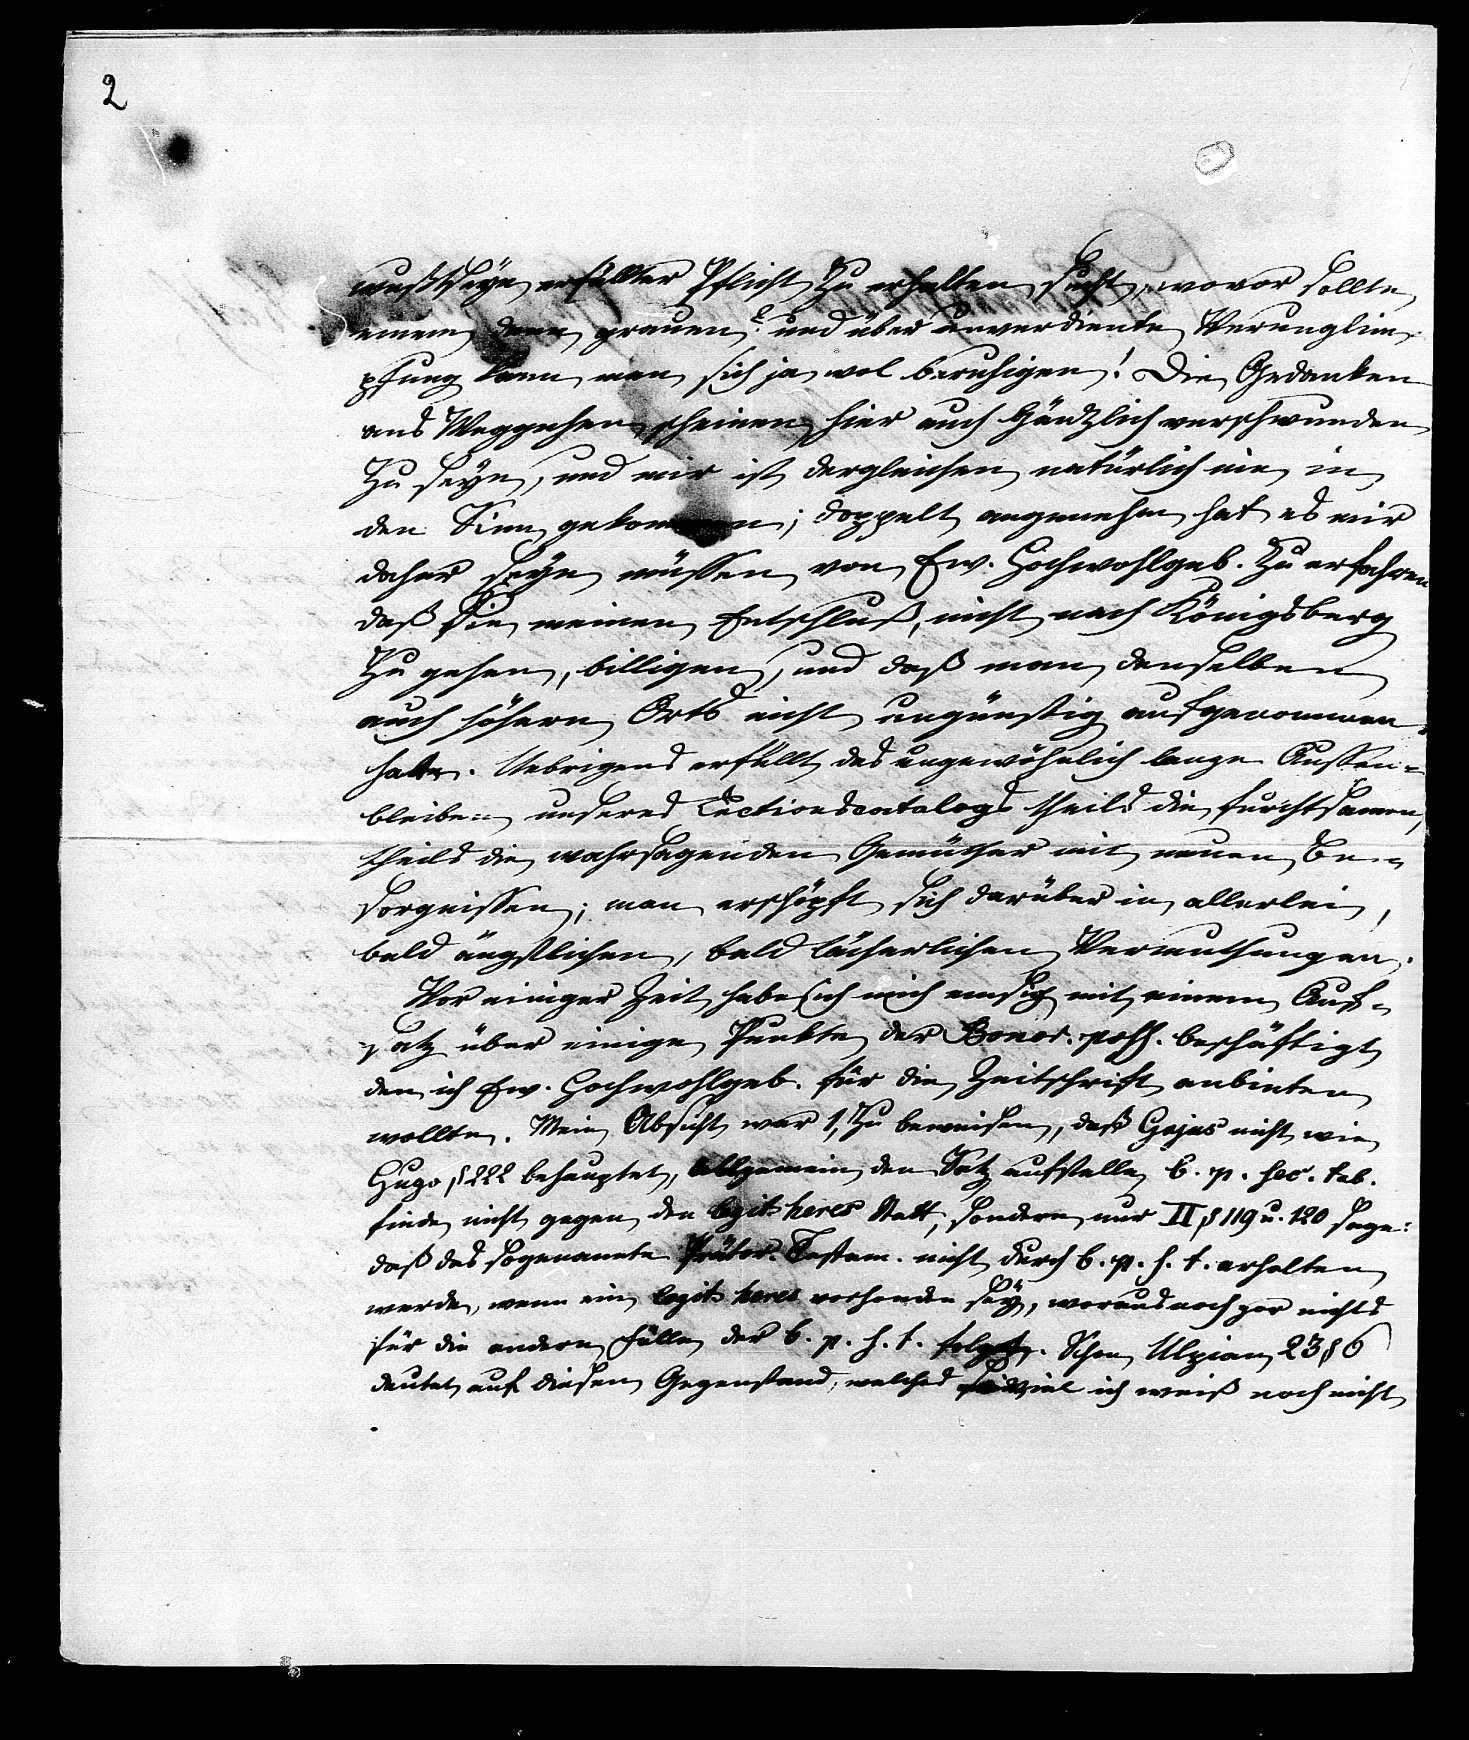 2
wußtseyn erfüllter Pflicht zu erhalten sucht, wovor sollte
einem denn grauen? und über unverdiente Verunglim-
pfung kann man sich ja wol beruhigen! Die Gedanken
ans Weggehen scheinen hier auch gänzlich verschwunden
zu seyn, und mir ist dergleichen natürlich nie in
den Sinn gekommen; doppelt angenehm hat es mir
daher seyn müssen von Ew. Hochwohlgeb. zu erfahren
daß Sie meinen Entschluß, nicht nach Königsberg
zu gehen, billigen, und daß man denselben
auch höhern Orts nicht ungünstig aufgenommen
habe. Uebrigens erfüllt das ungewöhnlich lange Aussen-
bleiben unseres Lectionscatalogs theils die furchtsamen,
theils die wahrsagenden Gemüther mit neuen Be-
sorgnissen; man erschöpft sich darüber in allerlei,
bald ängstlichen, bald lächerlichen Vermuthungen.
Vor einiger Zeit habe ich mich emsig mit einem Auf-
satz über einige Punkte der Bonor. poss. beschäftigt
den ich Ew. Hochwohlgeb. für die Zeitschrift anbieten
wollte. Mein Absicht war 1, zu beweisen, daß Gajus nicht wie
Hugo, § 222 behauptet, allgemein den Satz aufstelle, b. p. sec. tab.
finde nicht gegen den legit. heres Statt, sondern nur II § 119 u. 120 sage:
daß das sogenannte Prätor. Testam. nicht durch b. p. s. t. erhalten
werde, wenn ein legit. heres vorhanden sey, woraus noch gar nichts
für die andern Fälle der b. p. s. t. folgt. Schon Ulpian 23 § 6
deutet auf diesen Gegenstand, welches soviel ich weiß noch nicht